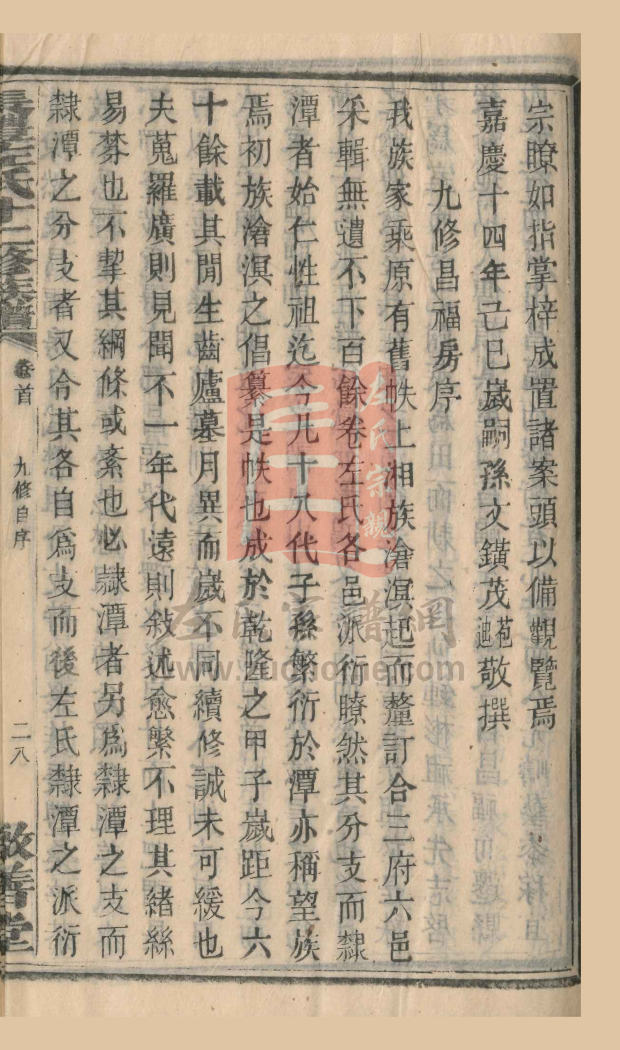 宗瞭如指掌梓成置諸案頭以備觀覽焉
嘉慶十四年己巳歲嗣孫文鐄茂苞敬撰
九修昌福房序
我族家乘原有舊帙上湘族滄溟起而釐訂合三府六邑
采輯無遺不下百餘卷左氏各邑派衍瞭然其分支而隸
潭者始仁性祖迄今凡十八代子孫繁衍於潭亦稱望族
焉初族滄溟之倡纂是帙也成於乾隆之甲子歲距今六
十餘載其閒生齒廬墓月異而歲不同續修誠未可緩也
夫蒐羅廣則見聞不一年代遠則敘述愈繁不理其緒絲
易棼也不挈其綱條或紊也必隸潭者另爲隸潭之支而
隸潭之分支者又令其各自爲支而後左氏隸潭之派衍
左氏十二修族譜
卷首
九修自序
二八
敬善堂
左氏宗親
左氏宗譜網
www.zuoshome.com